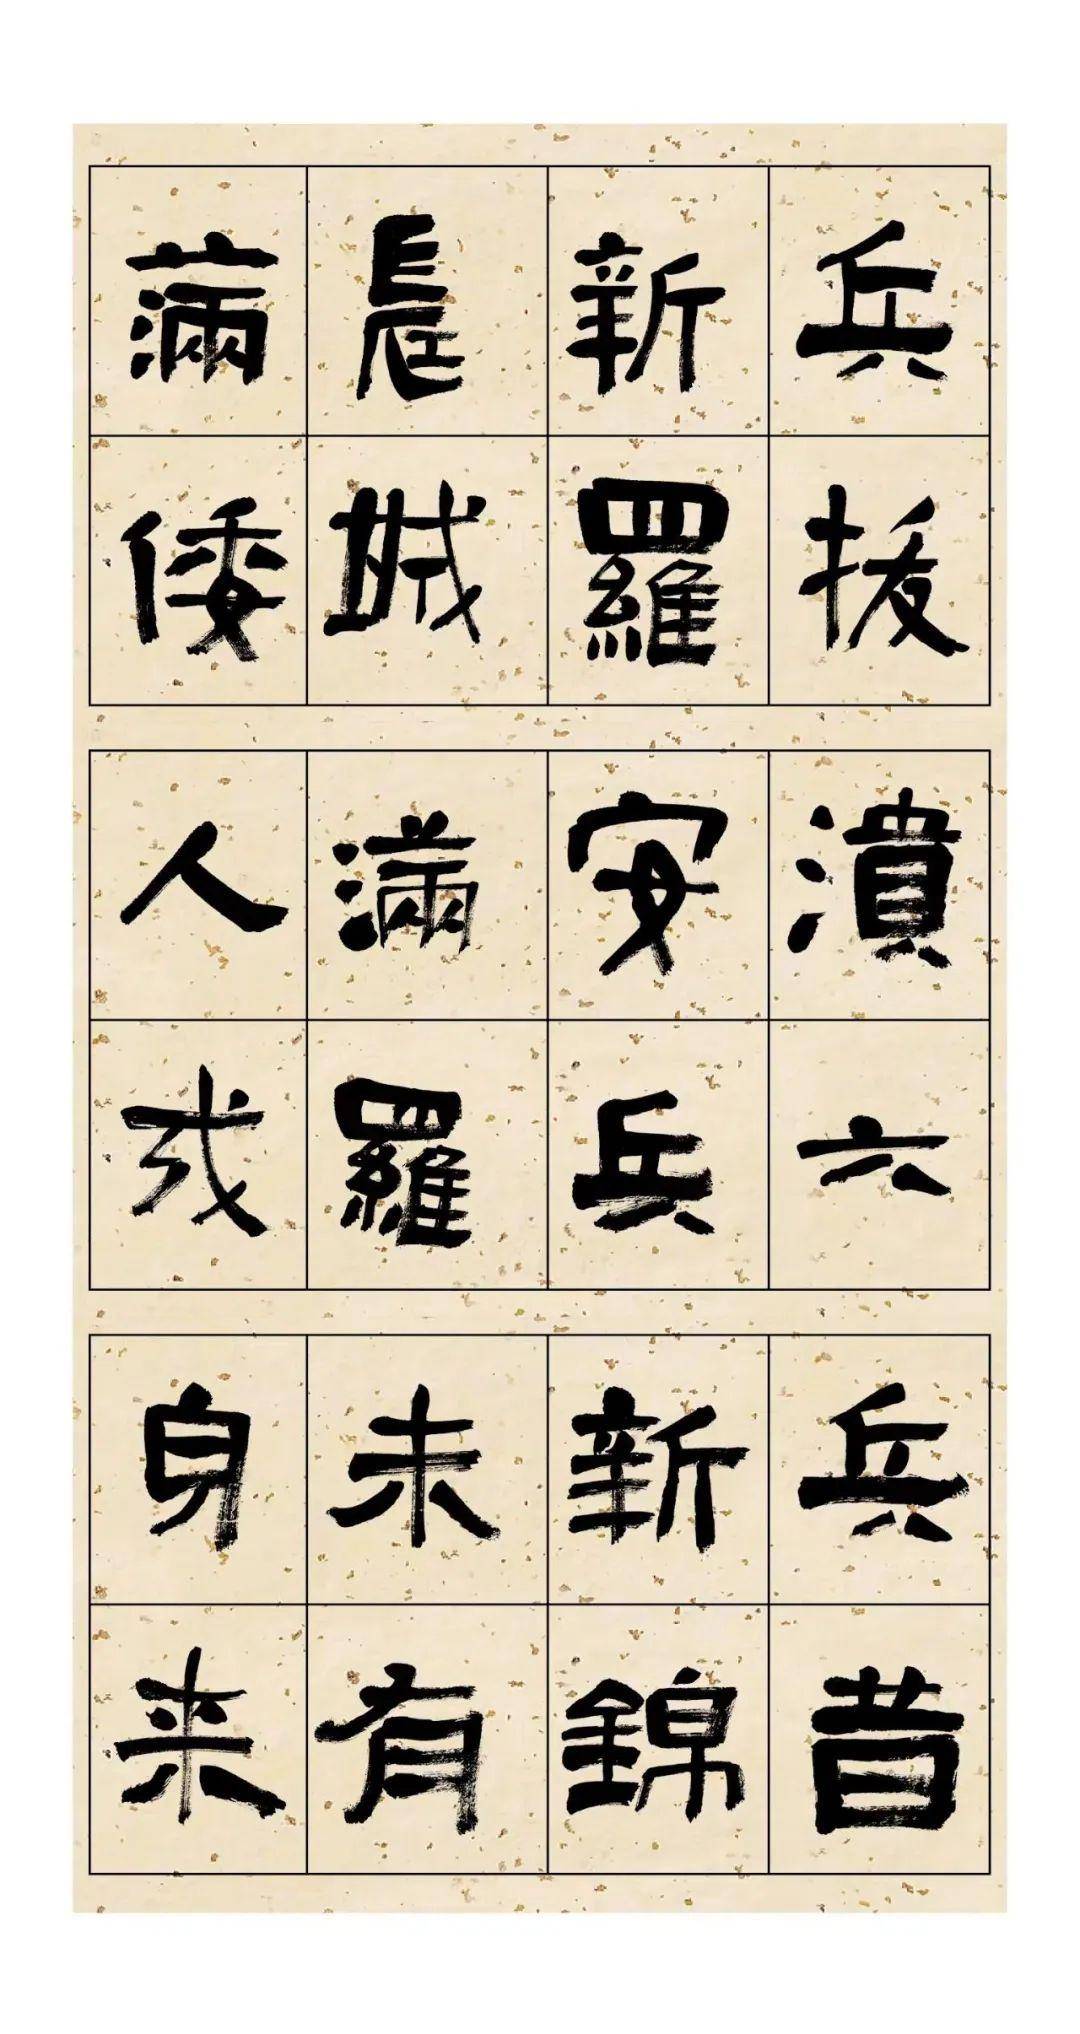 兵拔
新羅
晨城
滿倭
潰六
安兵
滿羅
人戍
兵昔
新錦
未有
身来